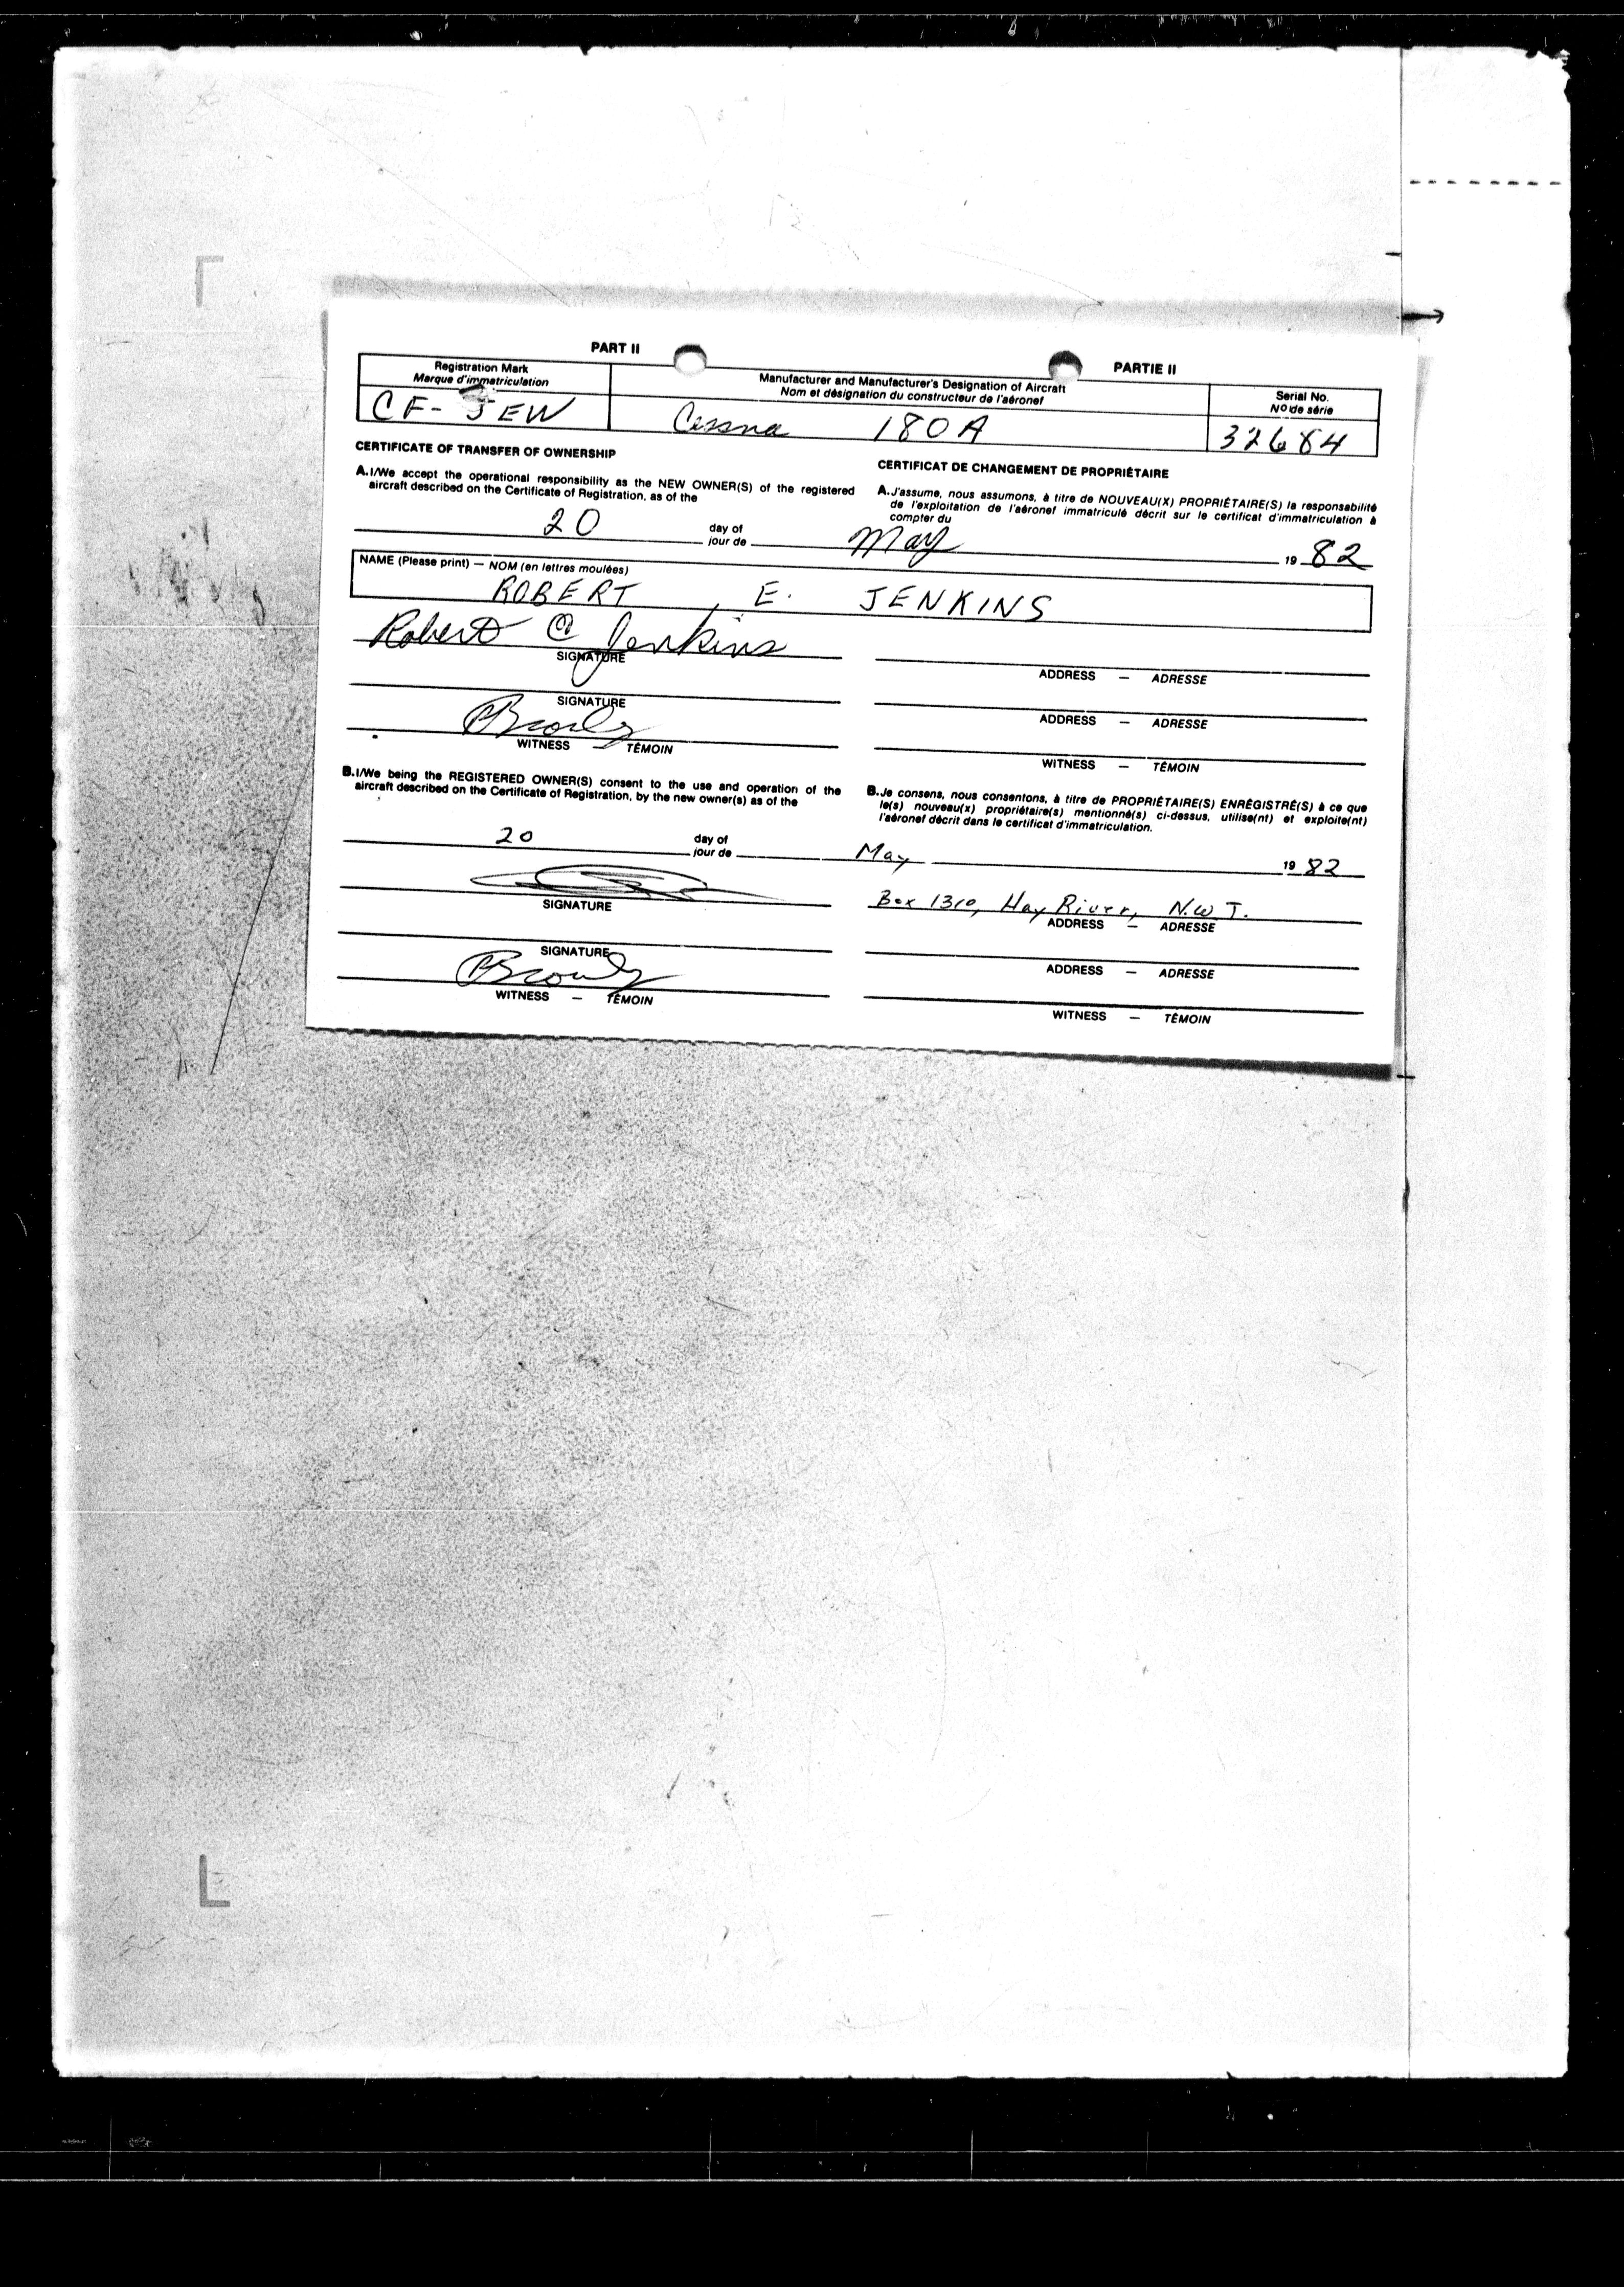 PART II PARTIE II
Registration Mark
Marque d'immatriculation
Manufacturer and Manufacturer's Designation of Aircraft
Nom et désignation du constructeur de l'aéronef
Serial No.
Nº de série
CF-JEW Cessna 180A 32684
CERTIFICATE OF TRANSFER OF OWNERSHIP
A. I/We accept the operational responsibility as the NEW OWNER(S) of the registered
aircraft described on the Certificate of Registration, as of the
CERTIFICAT DE CHANGEMENT DE PROPRIÉTAIRE
A. J'assume, nous assumons, à titre de NOUVEAU(X) PROPRIÉTAIRE(S) la responsabilité
de l'exploitation de l'aéronef immatriculé décrit sur le certificat d'immatriculation à
compter du
20 day of
jour de May 19 82
NAME (Please print) — NOM (en lettres moulées)
ROBERT E. JENKINS
Robert E Jenkins
SIGNATURE
ADDRESS — ADRESSE
SIGNATURE
ADDRESS — ADRESSE
WITNESS — TÉMOIN
WITNESS — TÉMOIN
B. I/We being the REGISTERED OWNER(S) consent to the use and operation of the
aircraft described on the Certificate of Registration, by the new owner(s) as of the
B. Je consens, nous consentons, à titre de PROPRIÉTAIRE(S) ENRÉGISTRÉ(S) à ce que
le(s) nouveau(x) propriétaire(s) mentionné(s) ci-dessus, utilise(nt) et exploite(nt)
l'aéronef décrit dans le certificat d'immatriculation.
20 day of
jour de May 19 82
SIGNATURE
Box 1310, Hay River, N.W.T.
ADDRESS — ADRESSE
SIGNATURE
ADDRESS — ADRESSE
WITNESS — TÉMOIN
WITNESS — TÉMOIN